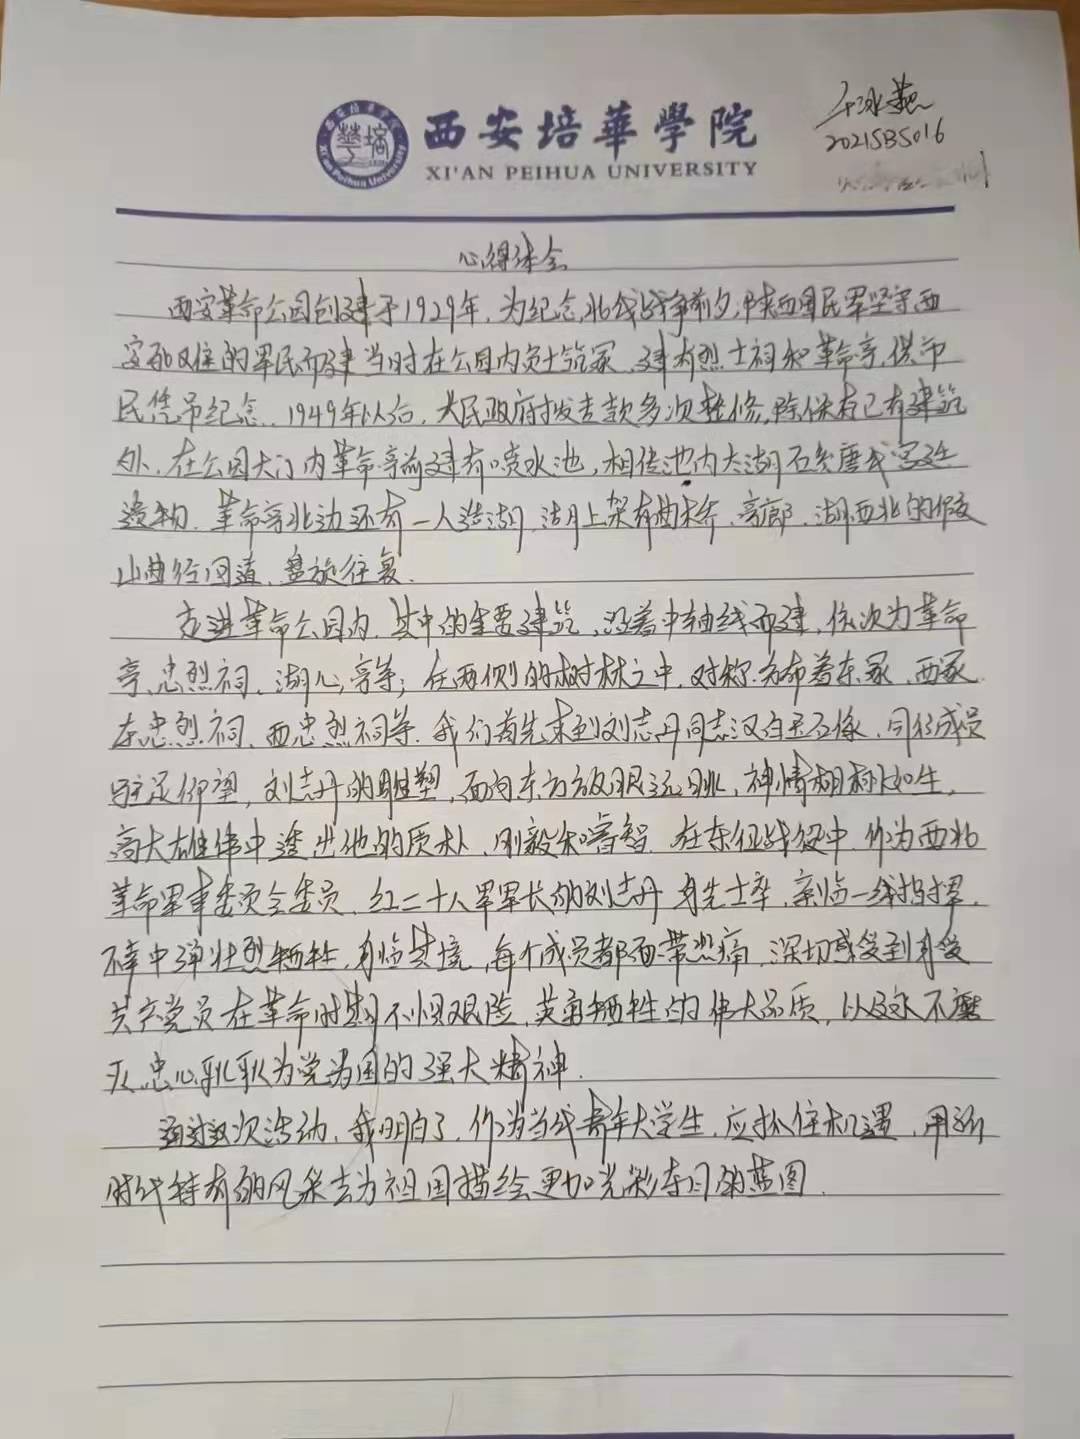 西安培華學院
XI'AN PEIHUA UNIVERSITY
2021SBS016
心得体会
西安革命公园创建于1929年,为纪念北伐战争前夕,陕西国民军坚守西
安死难的军民而建.当时在公园内负土筑冢,建有烈士祠和革命亭,供市
民凭吊纪念.1949年以后,人民政府拨专款多次整修,除保存已有建筑
外,在公园大门内革命亭前建有喷水池,相传池内太湖石系唐代宫廷
遗物.革命亭北边还有一人造湖,湖上架有曲桥,亭廊,湖西北的假
山曲径回道,盘旋往复.
走进革命公园内,其中的重要建筑,沿着中轴线而建,依次为革命
亭、忠烈祠、湖心亭等;在两侧的树林之中,对称分布着东冢、西冢、
东忠烈祠、西忠烈祠等.我们首先来到刘志丹同志汉白玉石像,同行成员
驻足仰望,刘志丹的雕塑,面向东方放眼远眺,神情栩栩如生,
高大雄伟中透出他的质朴、刚毅和睿智.在东征战役中,作为西北
革命军事委员会委员、红二十八军军长的刘志丹身先士卒,亲临一线指挥,
不幸中弹壮烈牺牲,身临其境,每个成员都面带悲痛,深切感受到
共产党员在革命时期不惧艰险,英勇牺牲的伟大品质,以及永不磨
灭、忠心耿耿为党为国的强大精神.
通过这次活动,我明白了,作为当代青年大学生,应抓住机遇,用新
时代特有的风采去为祖国描绘更加光彩夺目的蓝图.